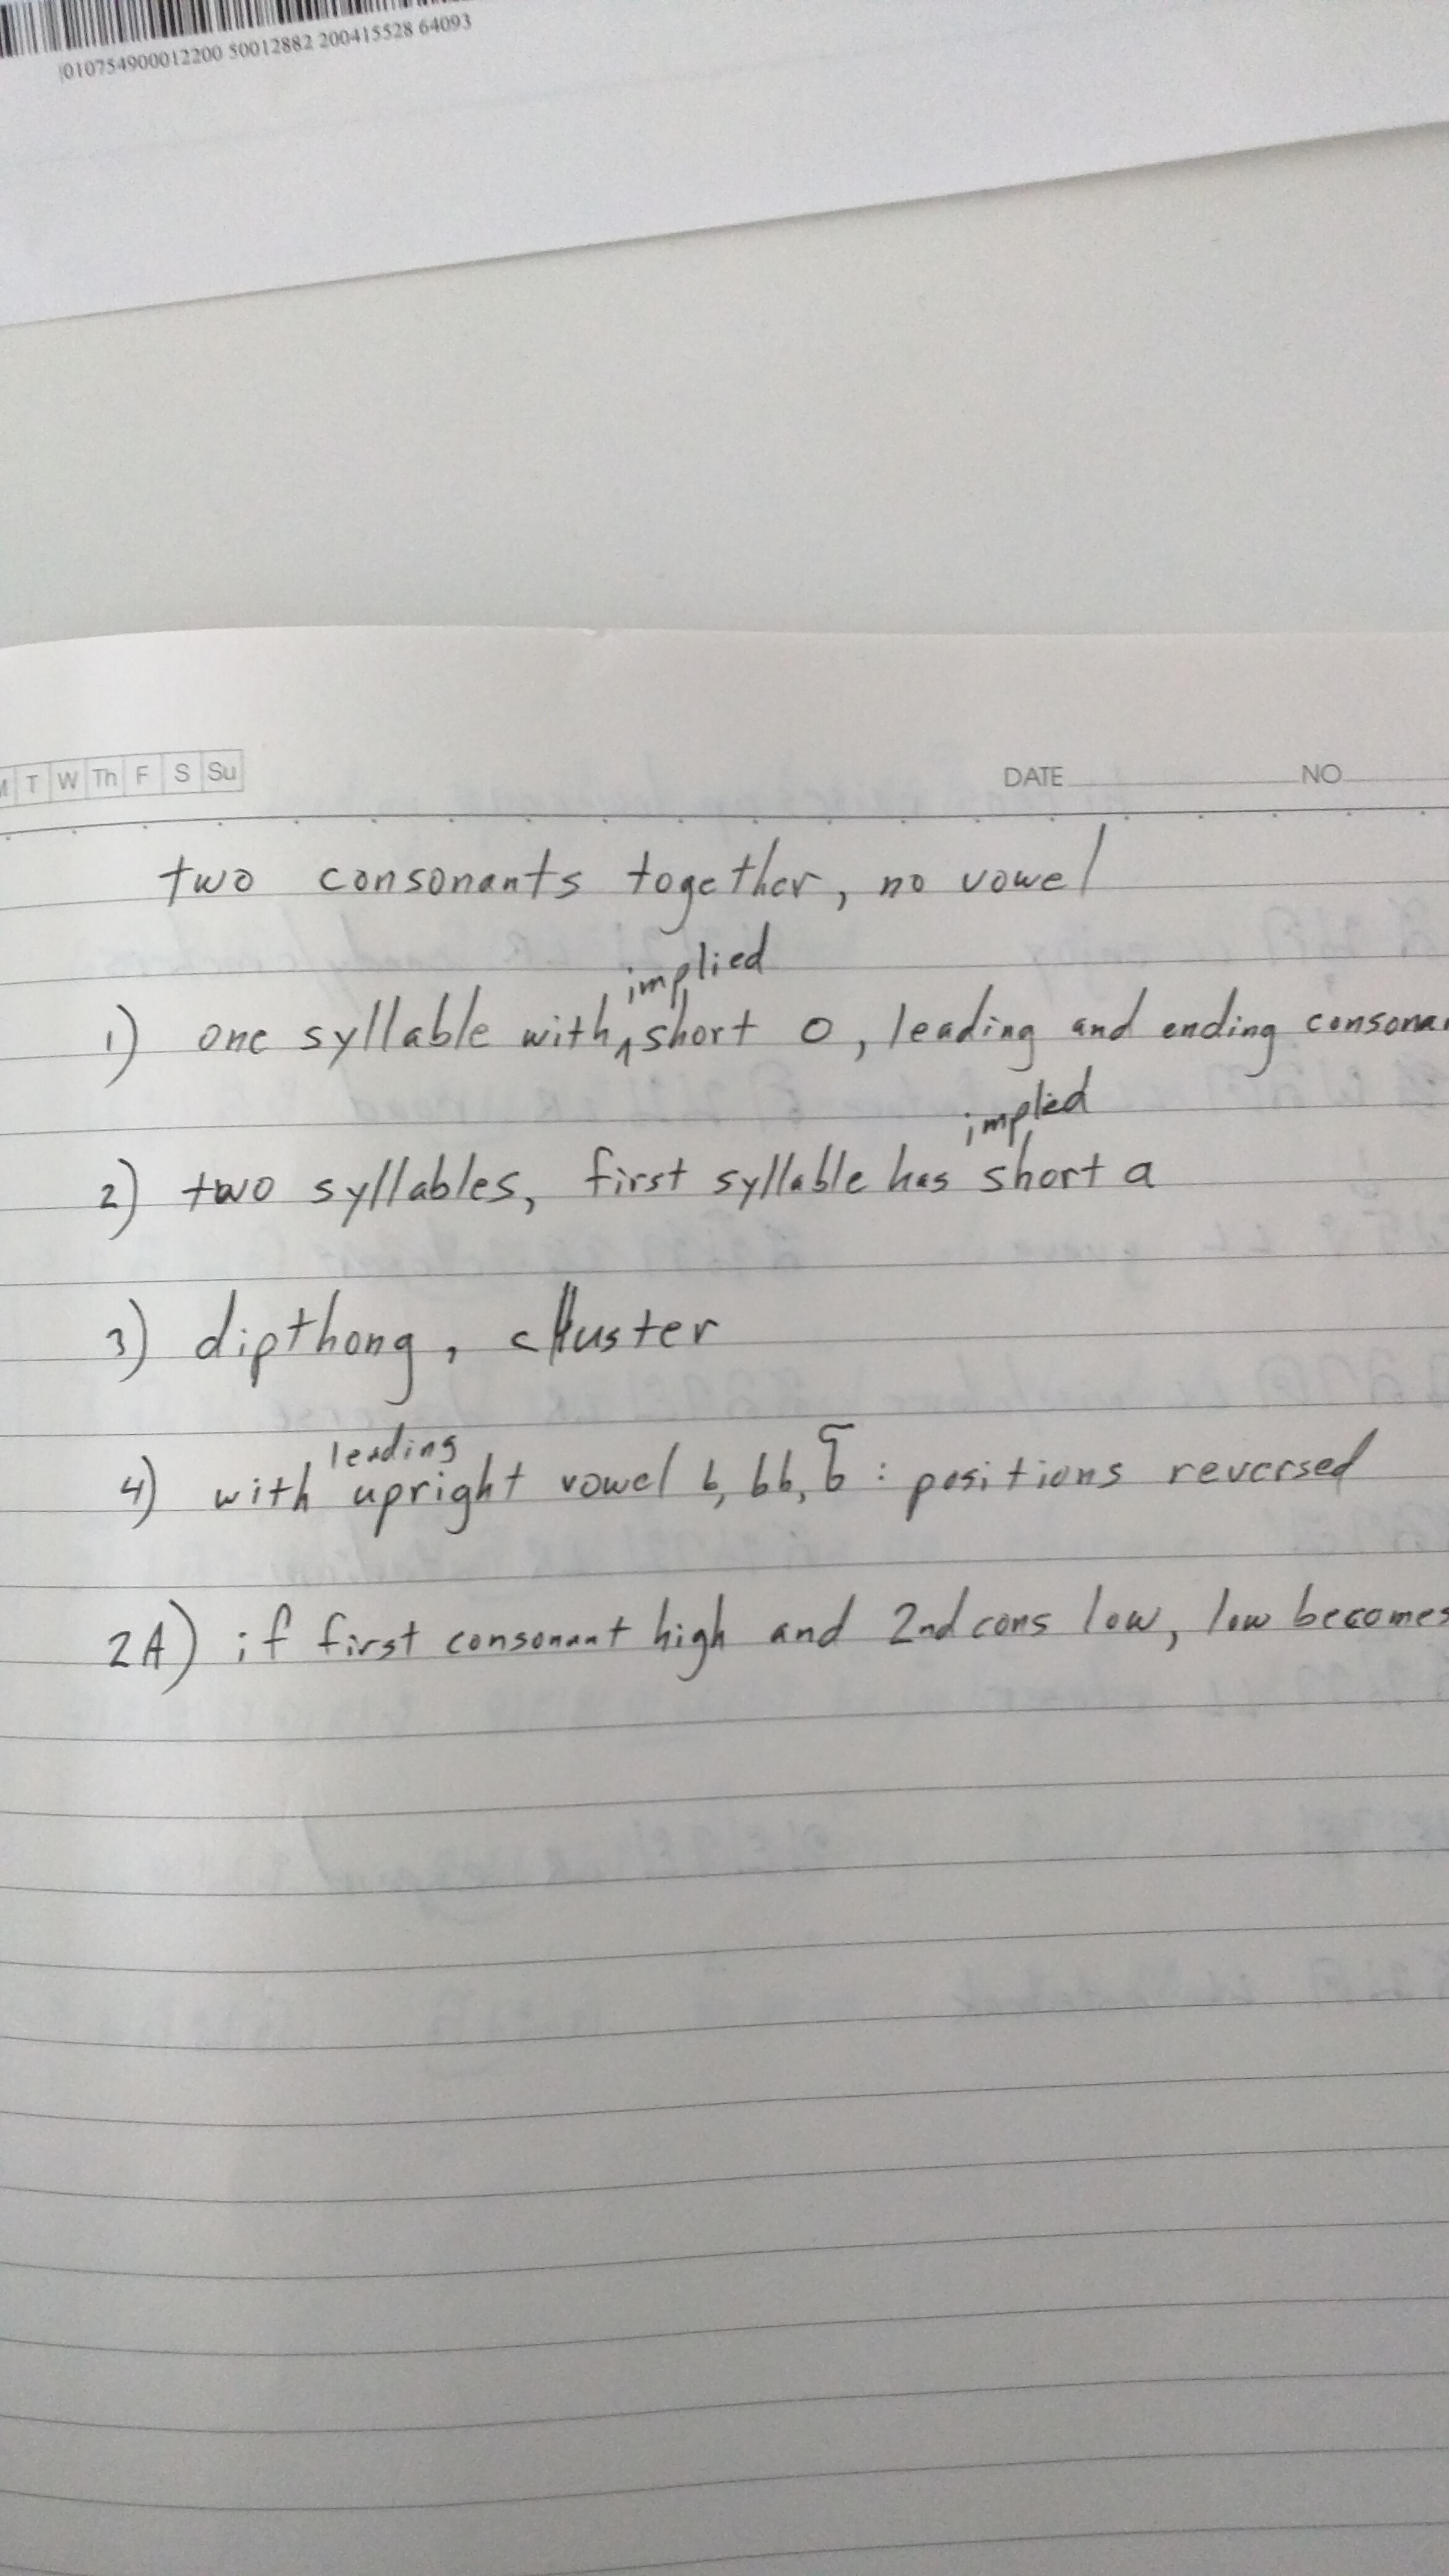 010754900012200 50012882 200415528 64093
T W Th F S Su DATE NO
two consonants together, no vowel
implied
1) one syllable with ‸ short o, leading and ending consona
implied
2) two syllables, first syllable has short a
3) dipthong, cluster
leading
4) with upright vowel เ, แ, โ : positions reversed
2A) if first consonant high and 2nd cons low, low becomes